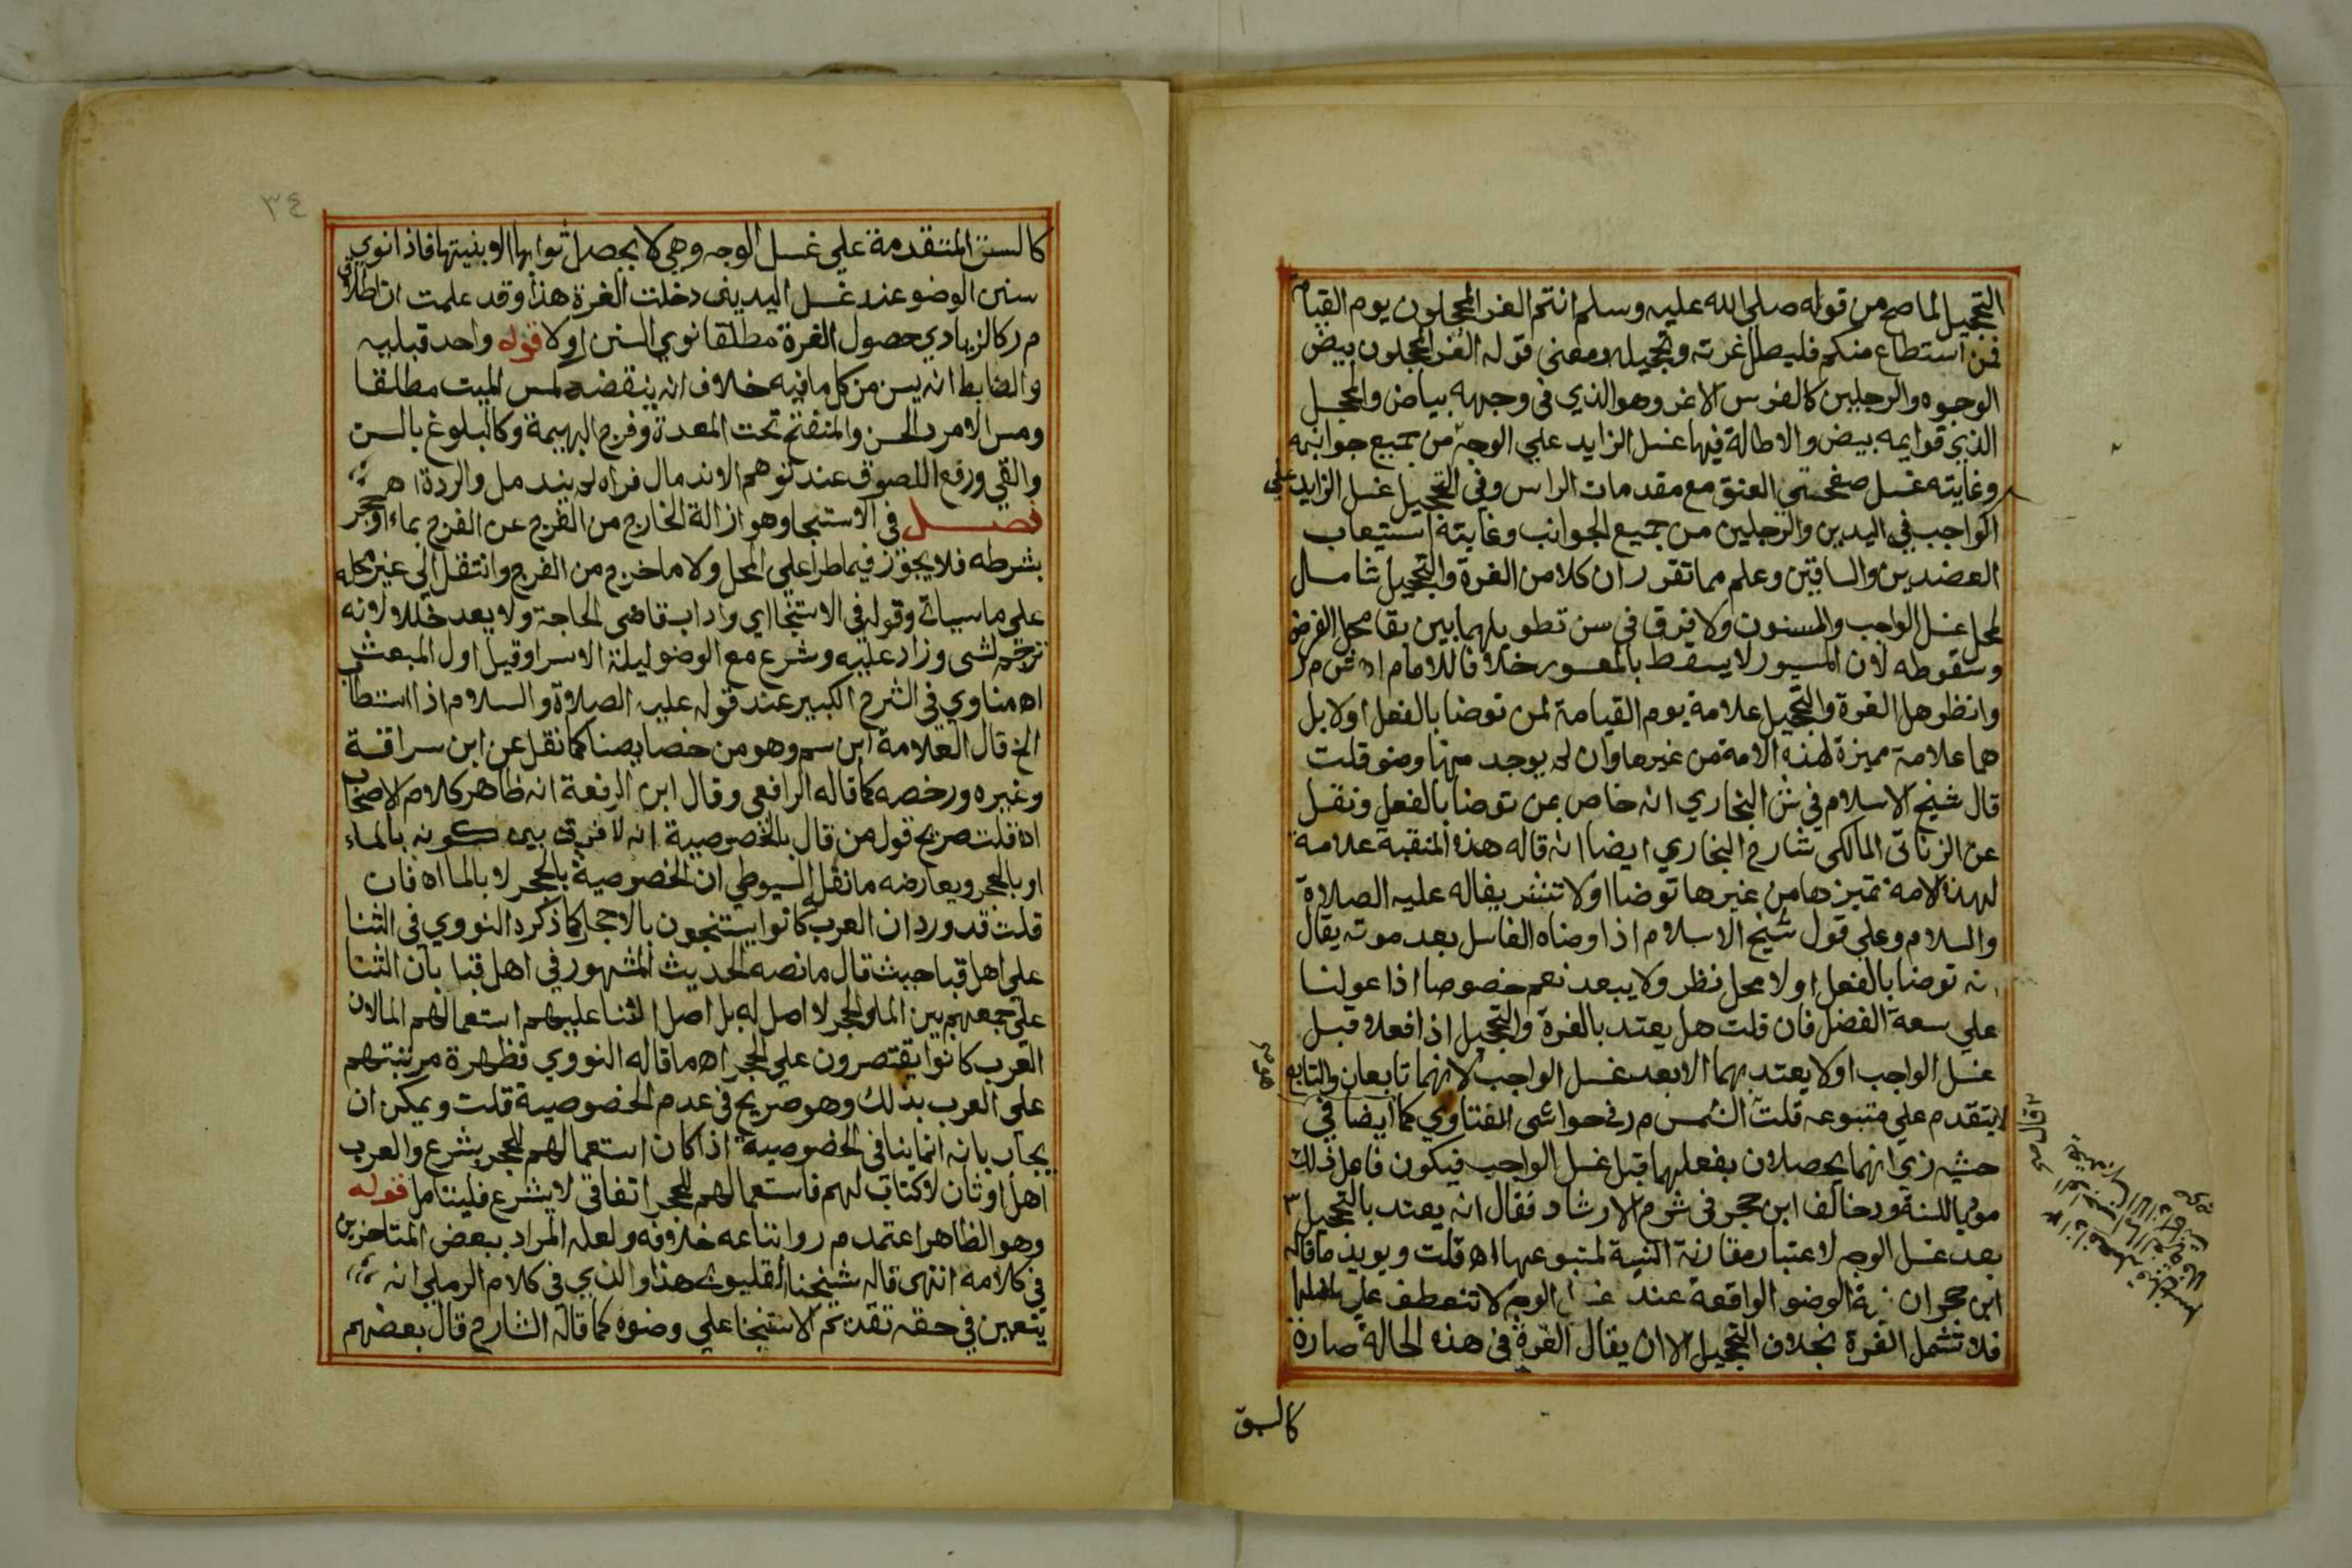 التحجيل لما صح من قوله صلى الله عليه وسلم انتم الغر المحجلون يوم القيامة
فمن استطاع منكم فليطل غرته وتحجيله ومعنى قوله الغر المحجلون بيض
الوجوه والرجلين كالفرس الاغر وهو الذي في وجهه بياض والمحجل
الذي قوايمه بيض والاطالة فيها غسل الزايد علي الوجه من جميع جوانبه
وغايته غسل صفحتي العنق مع مقدمات الراس وفي التحجيل غسل الزايد على
الواجب في اليدين والرجلين من جميع الجوانب وغايته استيعاب
العضدين والساقين وعلم مما تقرر ان كلا من الغرة والتحجيل شامل
لمحل غسل الواجب والمسنون ولا فرق في سن تطويلهما بين بقا محل الفرض
وسقوطه لان الميسور لا يسقط بالمعسور خلافا للامام اه ش م ر
وانظر هل الغرة والتحجيل علامة يوم القيامة لمن توضا بالفعل اولا بل
هما علامة مميزة لهذه الامة من غيرها وان لم يوجد منها وضو قلت
قال شيخ الاسلام في ش البخاري انه خاص بمن توضا بالفعل ونقل
عن الزناتي المالكي شارح البخاري ايضا انه قاله هذه المنقبة علامة
لهذه الامة تميزها من غيرها توضا اولا تشريفاله عليه الصلاة
والسلام وعلي قول شيخ الاسلام اذا وضاه الغاسل بعد موته يقال
انه توضا بالفعل اولا محل نظر ولا يبعد نعم خصوصا اذا عولنا
علي سعة الفضل فان قلت هل يعتد بالغرة والتحجيل اذا فعلا قبل
غسل الواجب اولا يعتد بهما الا بعد غسل الواجب لانهما تابعان والتابع
لا يتقدم علي متبوعه قلت الشمس م ر في حواشي الفتاوي كما ايضا في
حشيه زي انهما يحصلان بفعلهما قبل غسل الواجب فيكون فاعل ذلك
بالسنة وخالف ابن حجر في شرح الارشاد فقال انه يعتد بالتحجيل
بعد غسل الوجه لاعتبار مقارنة النية لمتبوعها اه قلت ويويد ما قاله
ابن حجر ان نية الوضو الواقعة عند غسل الوجه لا تنعطف علي ما قبلها
فلا تشمل الغرة بخلاف التحجيل الا ان يقال الغرة في هذه الحالة صارة
كالسنن
٣٤
كالسنن المتقدمة علي غسل الوجه وهي لا يحصل ثوابها الا بنيتها فاذا نوي
سنن الوضو عند غسل اليدين دخلت الغرة هذا وقد علمت ان اطلاق
م ر كالزيادي حصول الغرة مطلقا نوي السنن اولا قوله واحد قبليه
والضابط انه يسن من كل ما فيه خلاف انه ينقضه لمس الميت مطلقا
ومس الامرد الحسن والمنفتح تحت المعدة وفرج البهيمة وكالبلوغ بالسن
والقي ورفع اللصوق عند توهم الاندمال فراه لم يندمل والردة اه
فصل في الاستنجا وهو ازالة الخارج من الفرج عن الفرج بماء او حجر
بشرطه فلا يجوز فيما طرا علي المحل ولا ما خرج من الفرج وانتقل الى غير محله
على ما سياتي وقوله في الاستنجا اي واداب قاضي الحاجة ولا يعد خللا لانه
ترجم لشي وزاد عليه وشرع مع الوضو ليلة الاسرا وقيل اول المبعث
اه مناوي في الشرح الكبير عند قوله عليه الصلاة والسلام اذا استطاب
الخ قال العلامة ابن سم وهو من خصايصنا كما نقل عن ابن سراقة
وغيره ورخصه كما قاله الرافعي وقال ابن الرفعة انه ظاهر كلام الاصحاب
اه قلت صريح قول من قال بالخصوصية انه لا فرق بين كونه بالماء
او بالحجر ويعارضه ما نقل السيوطي ان الخصوصية بالحجر لا بالما اه فان
قلت قد ورد ان العرب كانوا يستنجون بالاحجار كما ذكره النووي في الثنا
علي اهل قبا حيث قال ما نصه الحديث المشهور في اهل قبا بان الثنا
علي جمعهم بين الما والحجر لا اصل له بل اصل الثنا عليهم استعمالهم الما لان
العرب كانوا يقتصرون علي الحجر اه ما قاله النووي فظهرة مرتبتهم
على العرب بذلك وهو صريح في عدم الخصوصية قلت ويمكن ان
يجاب بانه انما ينافي الخصوصية اذا كان استعمالهم للحجر بشرع والعرب
اهل اوثان لا كتاب لهم فاستعمالهم للحجر اتفاقي لا بشرع فليتامل قوله
وهو الظاهر اعتمد م ر واتباعه خلافه ولعله المراد ببعض المتاخرين
في كلامه انتهى قاله شيخنا القليوبي هذا والذي في كلام الرملي انه
يتعين في حقه تقديم الاستنجا علي وضوه كما قاله الشارح قال بعضهم